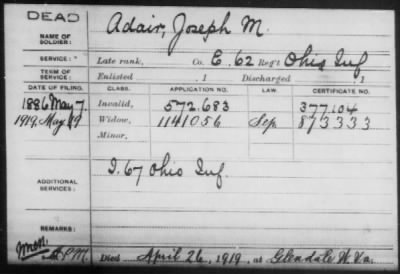 DEAD
NAME OF SOLDIER: Adair, Joseph M.
SERVICE: Late rank, Co. E. 62 Reg't Ohio Inf
TERM OF SERVICE: Enlisted , 1 Discharged , 1
DATE OF FILING. CLASS. APPLICATION NO. LAW. CERTIFICATE NO.
1886 May 7. Invalid, 572.683 377104
1919, May 19 Widow, 1141056 Sep 873333
Minor,
ADDITIONAL SERVICES: I. 67 Ohio Inf.
REMARKS:
Died April 26, 1919, at Glendale W. Va.